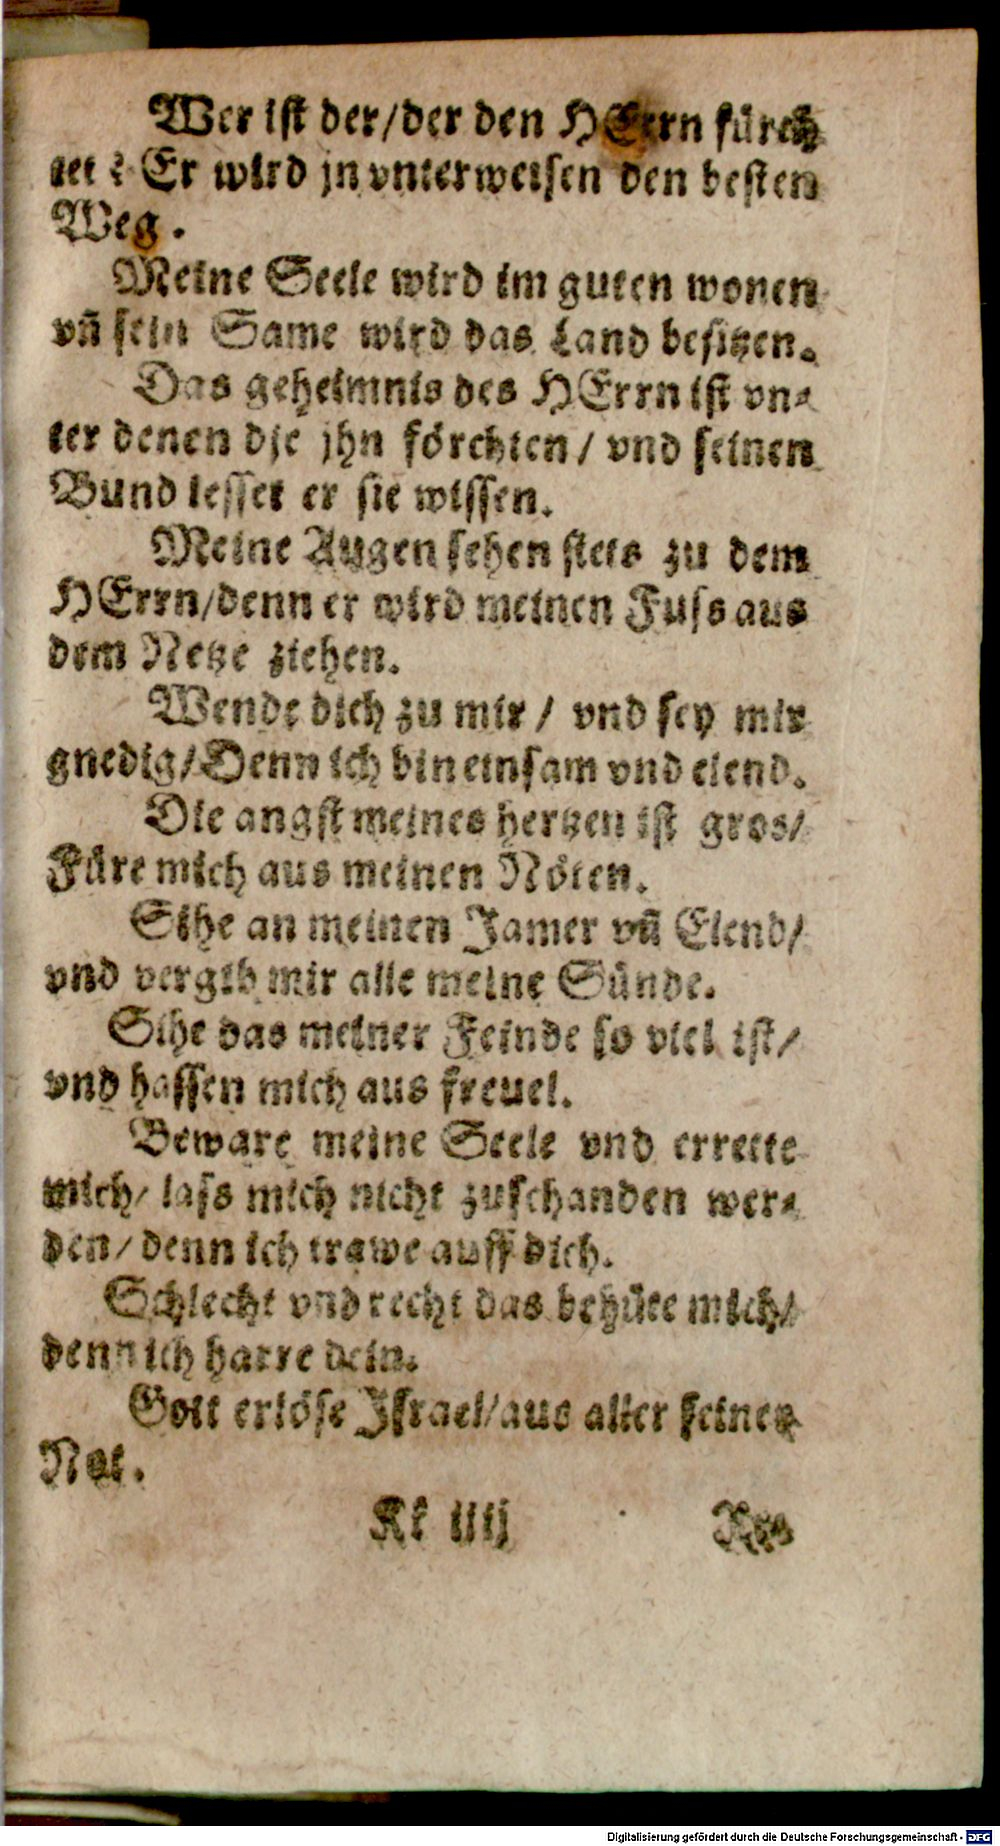 Wer ist der/der den HErrn fürch
tet? Er wird jn vnterweisen den besten
Weg.
Meine Seele wird im guten wonen
vñ sein Same wird das Land besitzen.
Das geheimnis des HErrn ist vn-
ter denen dje jhn förchten/ vnd seinen
Bund lesset er sie wissen.
Meine Augen sehen stets zu dem
HErrn/denn er wird meinen Fuss aus
dem Netze ziehen.
Wende dich zu mir/ vnd sey mir
gnedig/Denn ich bin einsam vnd elend.
Die angst meines hertzen ist gros/
Füre mich aus meinen Nöten.
Sihe an meinen Jamer vñ Elend/
vnd vergib mir alle meine Sünde.
Sihe das meiner Feinde so viel ist/
vnd hassen mich aus freuel.
Beware meine Seele vnd errette
mich/ lass mich nicht zuschanden wer-
den/denn ich trawe auff dich.
Schlecht vnd recht das behüte mich/
denn ich harre dein.
Gott erlöse Jsrael/aus aller seiner
Not.
Kk iiij
Digitalisierung gefördert durch die Deutsche Forschungsgemeinschaft - DFG